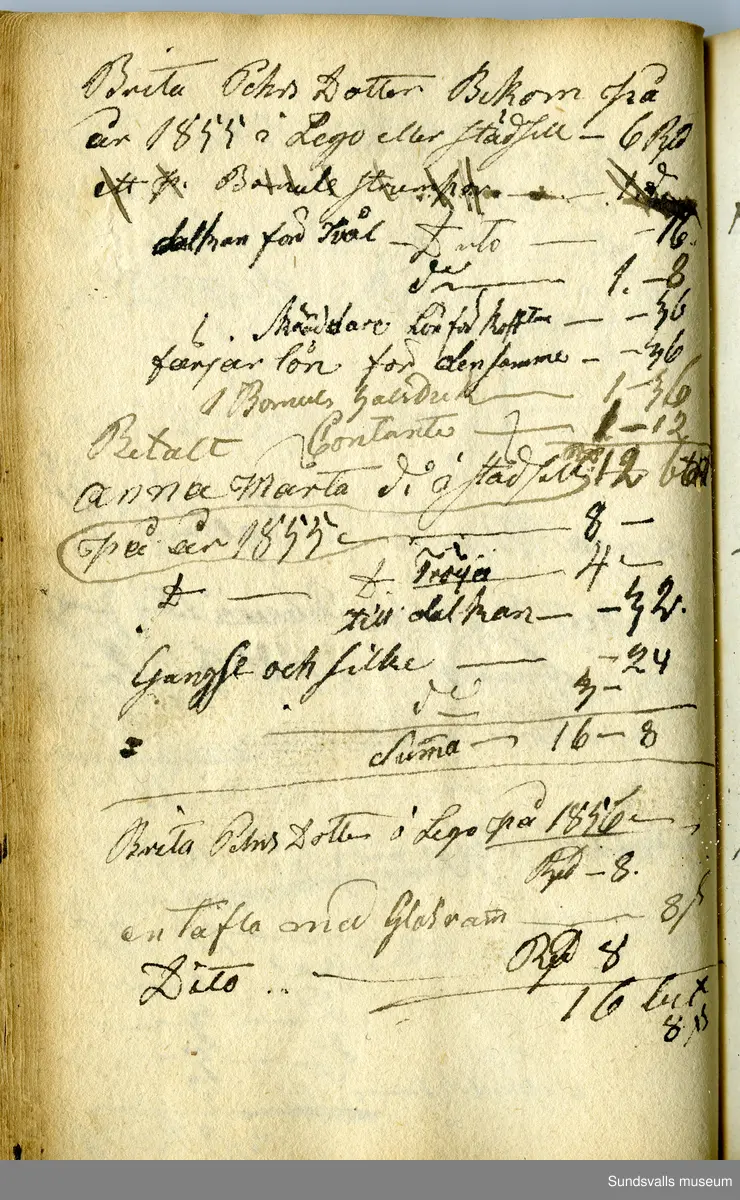 Brita Pehrs Dotter Bekom på
år 1855 i Lego eller städsell – 6 Rd
ett p. Bomuls strumpor
dalkan för Tvål – Dito – 16.
do 1. – 8
1. skräddare Lön för koftan – – 36
färjar lön för densamme – – 36
1 Bomuls halsduk 1 – 36
Betalt Contante 1 – 12
anna Märta di å städsell 12
på år 1855 8 –
D. – D. Tröja 4 –
till dalkan – – 32.
Gangse och silke – – 24
do 3 –
Suma – 16 – 8
Brita Pehrs Dotter i Lego på 1856
Rd – 8.
en tafla med Glasram 8 ß
Dito .. Rd 8
16 bet
8 ß
Sundsvalls museum